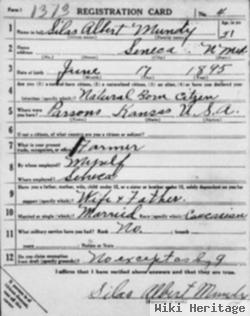 Form 1 1373 REGISTRATION CARD No. 4
1 Name in full Silas Albert Mundy 21
2 Seneca N Mex
3 Date of birth June 17 1895
4 Natural Born Citizen
5 Where were you born? Parsons Kansas U.S.A.
6 If not a citizen, of what country are you a citizen or subject?
7 What is your present trade, occupation, or office? Farmer
8 By whom employed? Myself
Where employed? Seneca
9 Have you a father, mother, wife, child under 12, or a sister or brother under 12, solely dependent on you for support (specify which)? Wife & Father
10 Married or single (which)? Married Race (specify which)? Caucasian
11 What military service have you had? Rank No
Nation or State
12 Do you claim exemption from draft (specify grounds)?
I affirm that I have verified above answers and that they are true.
Silas Albert Mundy
Wiki Heritage